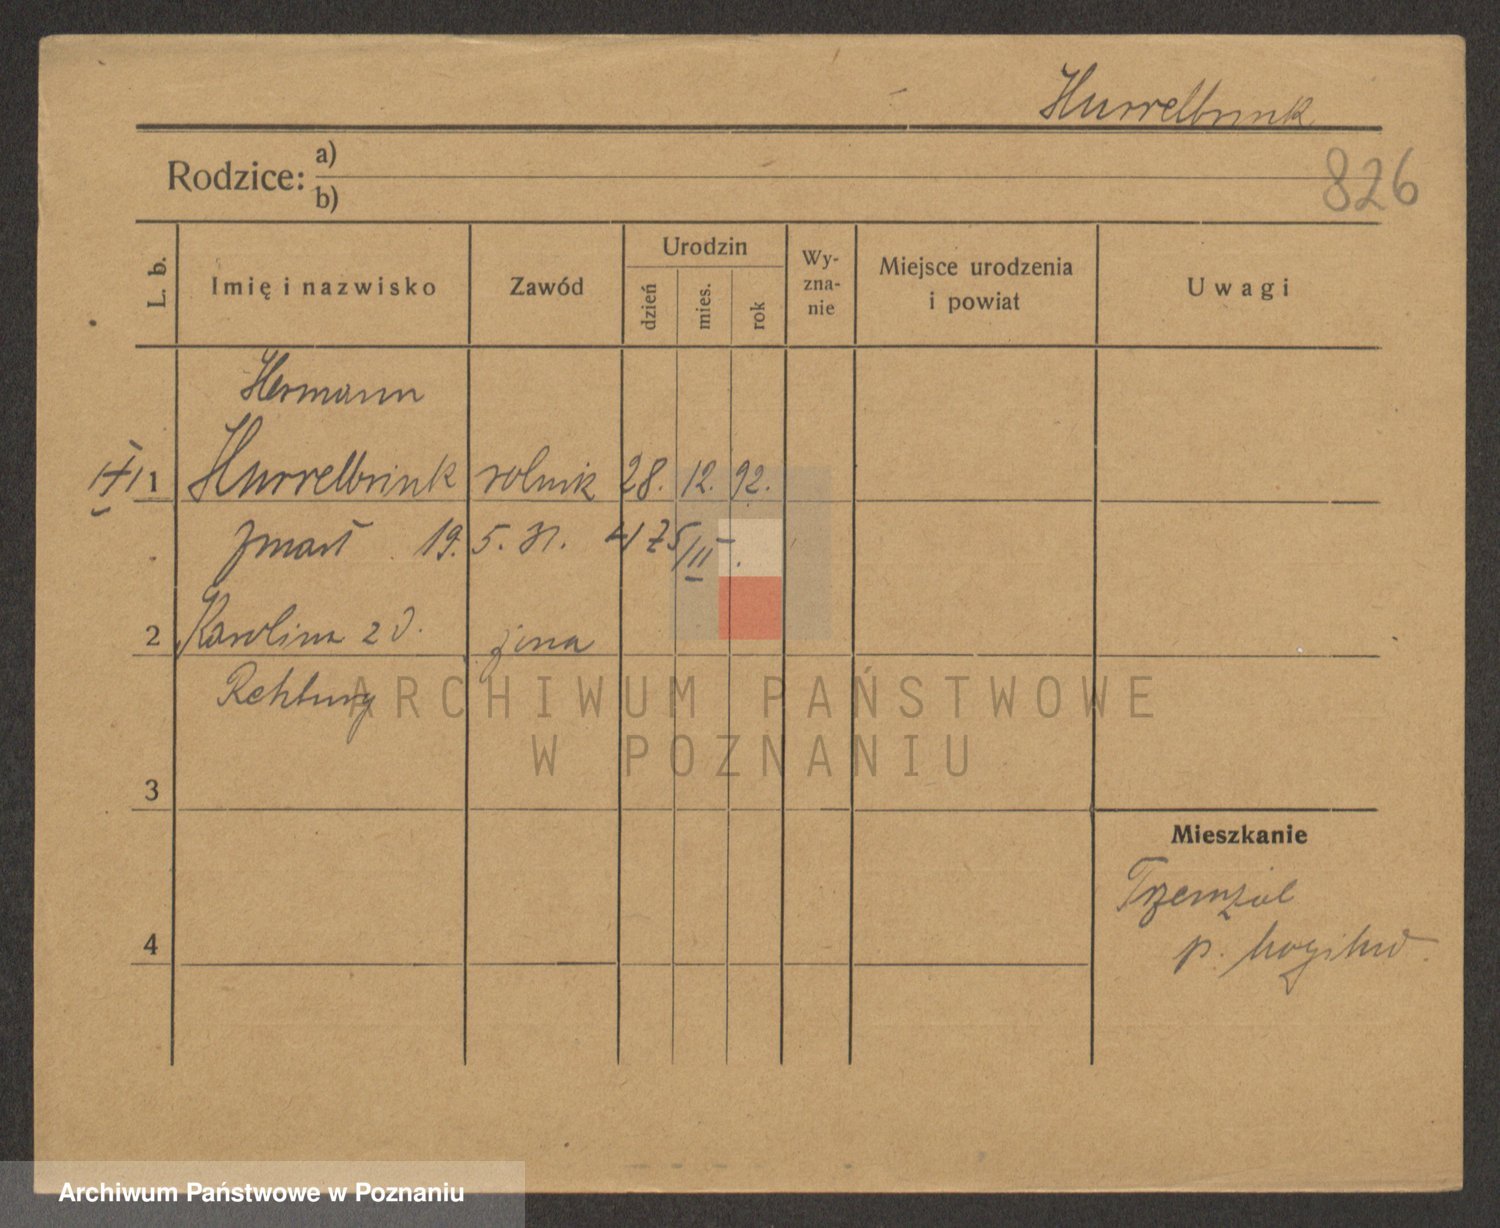 Hurrelbrink
826
Rodzice: a)
b)
L. b.
Imię i nazwisko
Zawód
Urodzin
dzień
mies.
rok
Wy-
zna-
nie
Miejsce urodzenia
i powiat
Uwagi
Hermann
1 Hurrelbrink rolnik 28. 12. 92.
zmarł 19. 5. 31.
2 Karolina z d. żona
Rehburg
3
4
Mieszkanie
Trzemżal
p.
ARCHIWUM PAŃSTWOWE
W POZNANIU
Archiwum Państwowe w Poznaniu